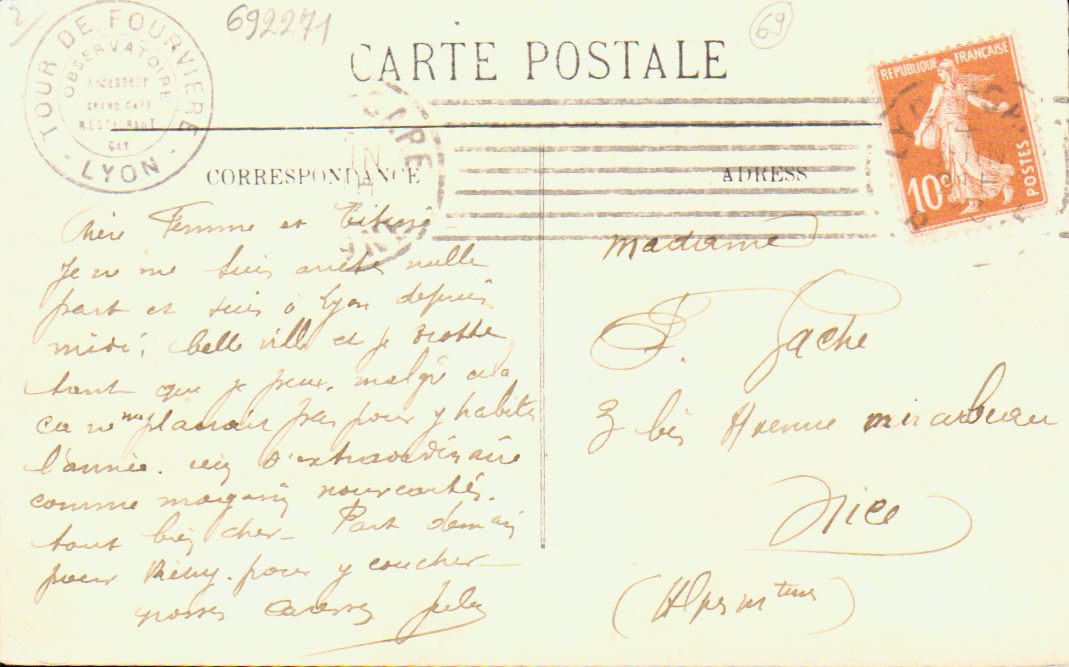 2
692271
69
TOUR DE FOURVIERE
OBSERVATOIRE
ASCENSEUR
GRAND CAFE
RESTAURANT
GAY
LYON
CARTE POSTALE
REPUBLIQUE FRANÇAISE
10c
POSTES
CORRESPONDANCE
ADRESS
Chère Femme et
Je ne me suis arrêté nulle
part et suis à Lyon depuis
midi, belle ville et je trotte
tant que je peux, malgré cela
ça ne me plairait pas pour y habiter
l'année. rien d'extraordinaire
comme magasin nouveautés.
tout bien cher_ Part demain
pour Vichy. pour y coucher_
grosses caresses Jules
Madame
F. Gache
3 bis Avenue Mirabeau
Nice
(Alpes Mtimes)